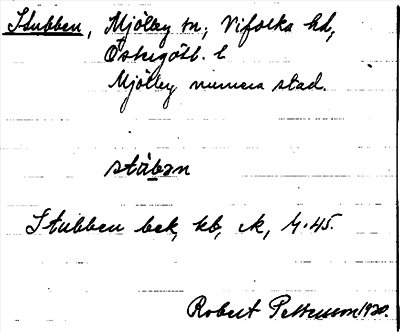 Stubben, Mjölby sn, Vifolka hd,
Östergötl. l
Mjölby numera stad.
stùbən
Stubben bek, kb, ek, 4.45.
Robert Pettersson 1920.